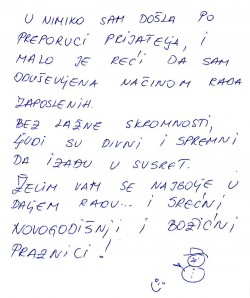 U NIMIKO SAM DOŠLA PO
PREPORUCI PRIJATELJA, I
MALO JE REĆI DA SAM
ODUŠEVLJENA NAČINOM RADA
ZAPOSLENIH.
BEZ LAŽNE SKROMNOSTI,
LJUDI SU DIVNI I SPREMNI
DA IZAĐU U SUSRET.
ŽELIM VAM SVE NAJBOLJE U
DALJEM RADU... I SREĆNI
NOVOGODIŠNJI I BOŽIĆNI
PRAZNICI!